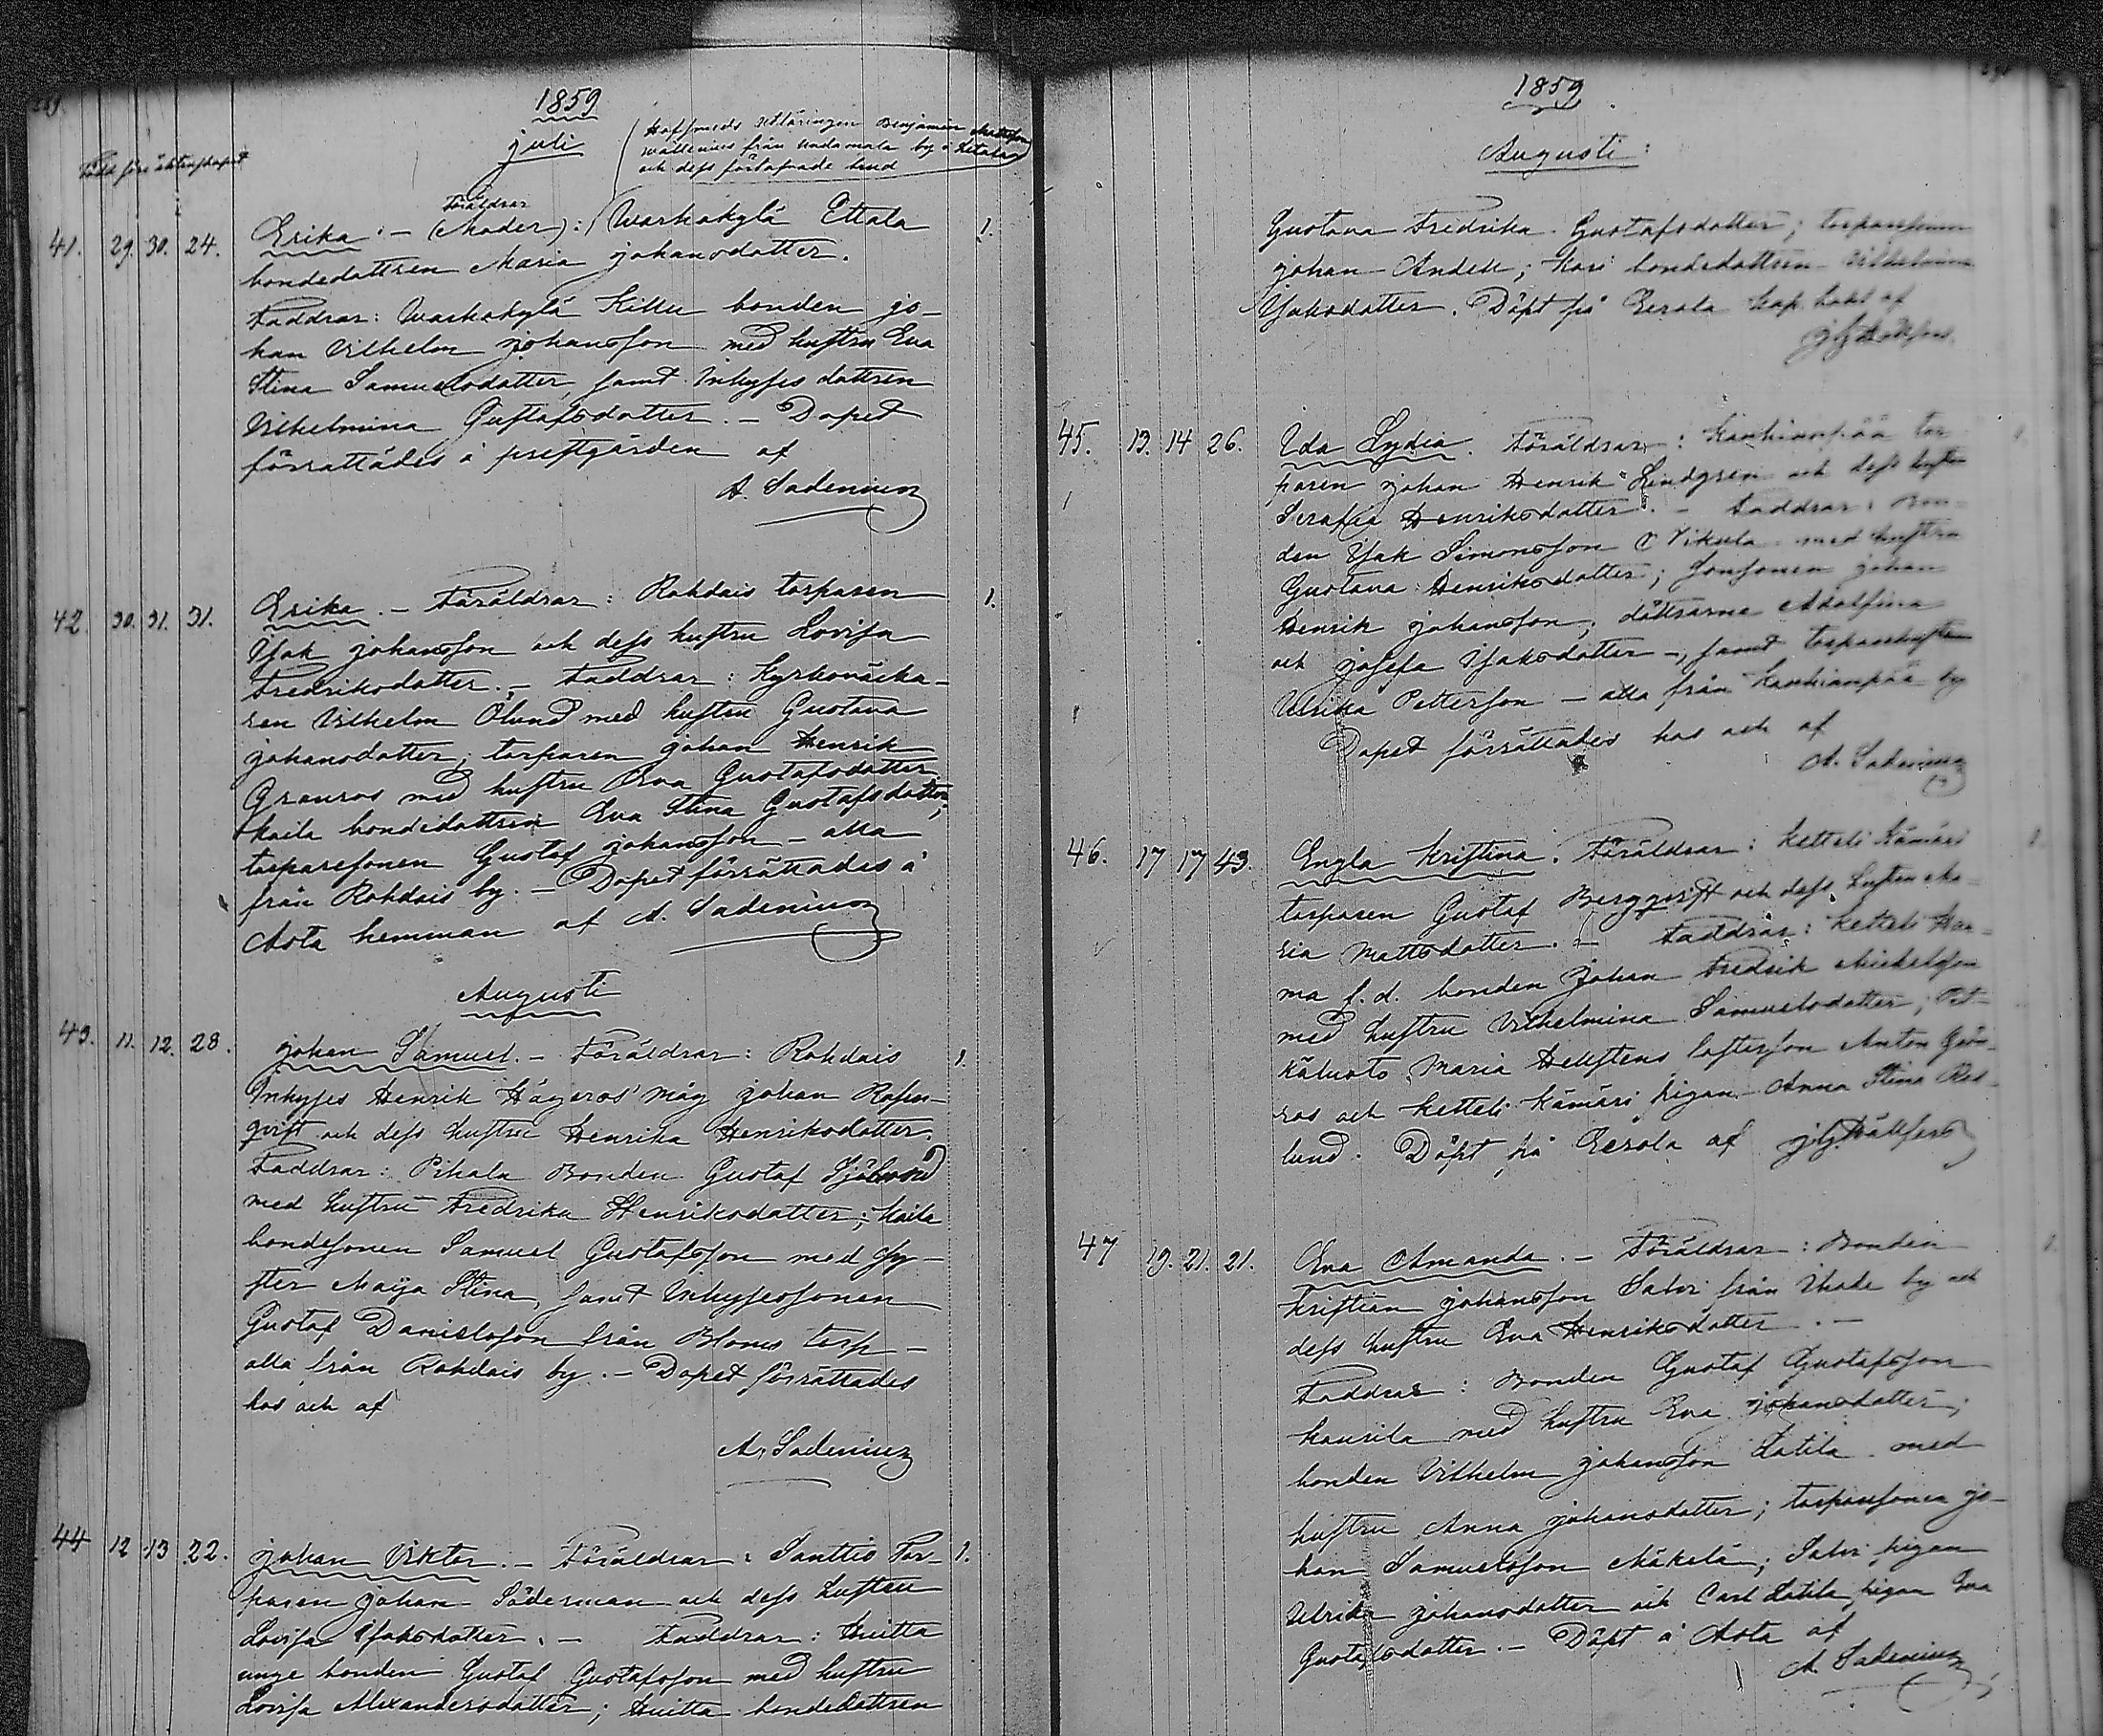 1859
juli
Född före äktenskapet
och dess förlofvade brud
Föräldrar
41. 29. 30. 24. Erika. - (Moder): Warhokylä Ettala 1.
bondedottren Maria Johansdotter.
Faddrar: Warhokylä Killu bonden Jo-
han Vilhelm Johansson med hustru Eva
Stina Samuelsdotter, samt Inhyses dottren
Vilhelmina Gustafsdotter. - Dopet
förrättades å prestgården af
A. Sadenius
42. 30. 31. 31. Erika. - Föräldrar: Rohdais torparen 1.
Isak Johansson och dess hustru Lovisa
Fredriksdotter. - Faddrar: Kyrkoväcka-
ren Vilhelm Ölund med hustru Gustava
Johansdotter; torparen Johan Henrik
Granros med hustru Eva Gustafsdotter,
Kaila bondedottren Eva Stina Gustafsdotter;
torparesonen Gustaf Johansson - alla
från Rohdais by. - Dopet förrättades å
Aota hemman af A. Sadenius
Augusti
43. 11. 12. 28. Johan Samuel. - Föräldrar: Rohdais 1.
Inhyses Henrik Hägeros' måg Johan Rosen-
qvist och dess hustru Henrika Henriksdotter.
Faddrar: Pihala Bonden Gustaf
med hustru Fredrika Henriksdotter; Kaila
bondesonen Samuel Gustafsson med sy-
ster Maija Stina, samt Inhysessonen
Gustaf Danielsson från Bloms torp -
alla från Rohdais by. - Dopet förrättades
hos och af
A. Sadenius
44 12 13 22. Johan Viktor. - Föräldrar: Santtis Tor- 1.
paren Johan Söderman och dess hustru
Lovisa Isaksdotter. - Faddrar: Huitta
unge bonden Gustaf Gustafsson med hustru
Lovisa Alexandersdotter; Huitta bondedottren
1859
Augusti:
Gustava Fredrika Gustafsdotter; torparesonen
Johan Andell; Kari bondedottren Vilhelmina
Isaksdotter. Döpt på Eerola kap. bohl af
45. 13. 14 26. Ida Lydia. Föräldrar: Kankianpää tor
paren Johan Henrik Lindgren och dess hustru
Serafia Henriksdotter. - Faddrar: Bon-
den Isak Simonsson Vikula med hustru
Gustava Henriksdotter; Sonsonen Johan
Henrik Johansson; döttrarne Adolfina
och Josefa Isaksdotter -, samt torparehustrun
Ulrika Petterson - alla från Kankianpää by
Dopet förrättades hos och af
A. Sadenius
46. 17 17 43. Engla Kristina. Föräldrar: Ketteli Kämäri
torparen Gustaf Bergqvist och dess hustru Ma-
ria Mattsdotter. - Faddrar: Ketteli
ma f.d. bonden Johan Fredrik Mickelsson
med hustru Vilhelmina Samuelsdotter; Pet-
käluoto Maria Hellstens fosterson Anton Grön-
ros och Ketteli Kämäri pigan Anna Stina Ros-
lund. Döpt på Eerola af
47 19. 21. 21. Eva Amanda. - Föräldrar: Bonden
Kristian Johansson Salvi från Ihode by och
dess hustru Eva Henriksdotter. -
Faddrar: Bonden Gustaf Gustafsson
Kaurila med hustru Eva Johansdotter;
bonden Vilhelm Johansson Latila med
hustru Anna Johansdotter; torparesonen Jo-
han Samuelsson Mäkelä; Salvi pigan
Ulrika Johansdotter och Carl Latila pigan Eva
Gustafsdotter. - Döpt å Aota af
A. Sadenius